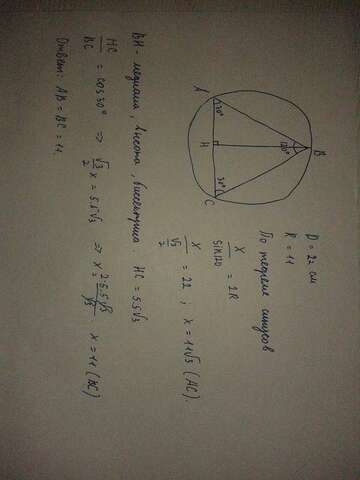 D = 22 см
R = 11
По теореме синусов
X / sin120 = 2R
X / √3/2 = 22 ; x = 11√3 (AC).
A
B
C
H
30°
30°
120°
BH - медиана, высота, биссектриса. HC = 5.5√3
HC / BC = cos30° ⇒ √3/2 x = 5.5√3 ⇒ x = 2·5.5√3 / √3 x = 11 (BC)
Ответ: AB = BC = 11.